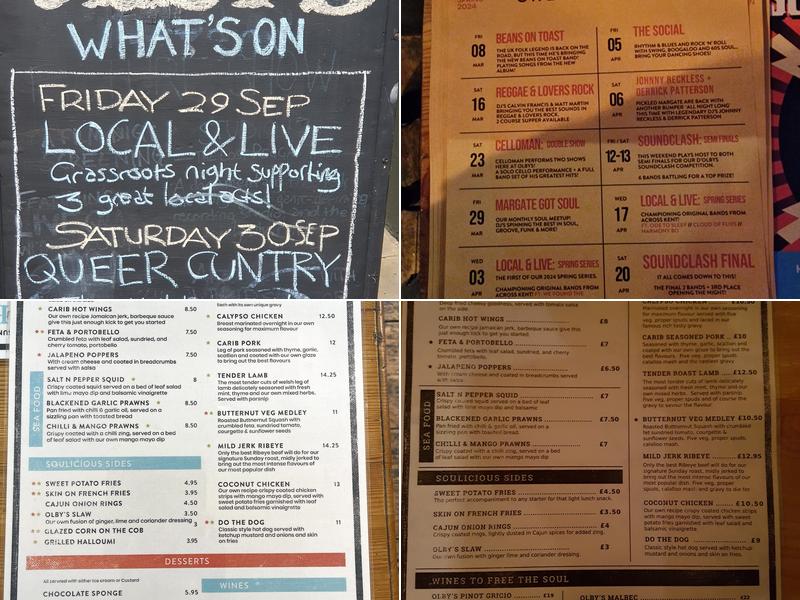 WHAT'S ON
FRIDAY 29 SEP
LOCAL & LIVE
Grassroots night supporting
3 great local acts!
SATURDAY 30 SEP
QUEER CUNTRY
2024
FRI
08
MAR
BEANS ON TOAST
THE UK FOLK LEGEND IS BACK ON THE
ROAD, BUT THIS TIME HE'S BRINGING
THE NEW BEANS ON TOAST BAND!
PLAYING SONGS FROM THE NEW
ALBUM!
SAT
16
MAR
REGGAE & LOVERS ROCK
DJ'S CALVIN FRANCIS & MATT MARTIN
BRINGING YOU THE BEST SOUNDS IN
REGGAE & LOVERS ROCK.
2 COURSE SUPPER AVAILABLE
SAT
23
MAR
CELLOMAN: DOUBLE SHOW
CELLOMAN PERFORMS TWO SHOWS
HERE AT OLBY'S!
A SOLO CELLO PERFORMANCE + A FULL
BAND SET OF HIS GREATEST HITS!
FRI
29
MAR
MARGATE GOT SOUL
OUR MONTHLY SOUL MEETUP!
DJ'S SPINNING THE BEST IN SOUL,
GROOVE, FUNK & MORE!
WED
03
APR
LOCAL & LIVE: SPRING SERIES
THE FIRST OF OUR 2024 SPRING SERIES.
CHAMPIONING ORIGINAL BANDS FROM
ACROSS KENT! FT. WE FOUND THE
FRI
05
APR
THE SOCIAL
RHYTHM & BLUES AND ROCK 'N' ROLL
WITH SWING, BOOGALOO AND 60S SOUL..
BRING YOUR DANCING SHOES!
SAT
06
APR
JOHNNY RECKLESS +
DERRICK PATTERSON
PICKLED MARGATE ARE BACK WITH
ANOTHER BUMPER 'ALL NIGHT LONG'
THIS TIME WITH LEGENDARY DJ'S JOHNNY
RECKLESS & DERRICK PATTERSON
FRI / SAT
12-13
APR
SOUNDCLASH: SEMI FINALS
THIS WEEKEND PLAYS HOST TO BOTH
SEMI FINALS FOR OUR D'OLBYS
SOUNDCLASH COMPETITION.
6 BANDS BATTLING FOR A TOP PRIZE!
WED
17
APR
LOCAL & LIVE: SPRING SERIES
CHAMPIONING ORIGINAL BANDS FROM
ACROSS KENT!
FT. ODE TO SLEEP // CLOUD OF FLIES //
HARMONY BO
SAT
20
APR
SOUNDCLASH FINAL
IT ALL COMES DOWN TO THIS!
THE FINAL 2 BANDS + 3RD PLACE
OPENING THE NIGHT!
CARIB HOT WINGS 8.50
Our own recipe Jamaican jerk, barbeque sauce
give this just enough kick to get you started
FETA & PORTOBELLO 7.50
Crumbled feta with leaf salad, sundried, and
cherry tomato, portobello
JALAPENO POPPERS 7.50
With cream cheese and coated in breadcrumbs
served with salsa
SEA FOOD
SALT N PEPPER SQUID 8
Crispy coated squid served on a bed of leaf salad
with lime mayo dip and balsamic vinaigrette
BLACKENED GARLIC PRAWNS 8.50
Pan fried with chilli & garlic oil, served on a
sizzling pan with toasted bread
CHILLI & MANGO PRAWNS 8.50
Crispy coated with a chilli zing, served on a bed
of leaf salad with our own mango mayo dip
SOULICIOUS SIDES
SWEET POTATO FRIES 4.95
SKIN ON FRENCH FRIES 3.95
CAJUN ONION RINGS 4.50
OLBY'S SLAW 3.50
Our own fusion of ginger, lime and coriander dressing
GLAZED CORN ON THE COB 3
GRILLED HALLOUMI 3.95
DESSERTS
All served with either Ice cream or Custard
CHOCOLATE SPONGE 5.95
Each with its own unique gravy
CALYPSO CHICKEN 12.50
Breast marinated overnight in our own
seasoning for maximum flavour
CARIB PORK 12
Leg of pork seasoned with thyme, garlic,
scallion and coated with our own glaze
to bring out the best flavours
TENDER LAMB 14.25
The most tender cuts of welsh leg of
lamb delicately seasoned with fresh
mint, thyme and our own mixed herbs.
Served with parsnip
BUTTERNUT VEG MEDLEY 11
Roasted Butternut Squash with
crumbled feta, sundried tomato,
courgette & sunflower seeds
MILD JERK RIBEYE 14.25
Only the best Ribeye beef will do for our
signature Sunday roast, mildly jerked to
bring out the most intense flavours of
our most popular dish
COCONUT CHICKEN 13
Our own recipe crispy coated chicken
strips with mango mayo dip, served with
sweet potato fries garnished with leaf
salad and balsamic vinaigrette
DO THE DOG 11
Classic style hot dog served with
ketchup mustard and onions and skin
on fries
WINES
on the side.
CARIB HOT WINGS £8
Our own recipe Jamaican jerk, barbeque sauce
give this just enough kick to get you started
FETA & PORTOBELLO £7
Crumbled feta with leaf salad, sundried, and cherry
tomato, portobello.
JALAPENO POPPERS £6.50
With cream cheese and coated in breadcrumbs
served with salsa
SEA FOOD
SALT N PEPPER SQUID £7
Crispy coated squid served on a bed of leaf
salad with lime mayo and balsamic
BLACKENED GARLIC PRAWNS £7.50
Pan fried with chilli & garlic oil, served on a
sizzling pan with toasted bread.
CHILLI & MANGO PRAWNS £7
Crispy coated with a chilli zing, served on a bed
of leaf salad with our own mango mayo dip
SOULICIOUS SIDES
SWEET POTATO FRIES £4.50
The perfect accompaniment to any starter for that light lunch snack.
SKIN ON FRENCH FRIES £3.50
CAJUN ONION RINGS £4
Crispy coated rings, lightly dusted in Cajun spices for added zing.
OLBY'S SLAW £3
Our own fusion of ginger lime and coriander dressing.
WINES TO FREE THE SOUL
OLBY'S PINOT GRIGIO £19
OLBY'S MALBEC £22
CARIB SEASONED PORK £10
TENDER ROAST LAMB £12.50
BUTTERNUT VEG MEDLEY £10.50
MILD JERK RIBEYE £12.95
COCONUT CHICKEN £10.50
Our own recipe crispy coated chicken strips
with mango mayo dip, served with sweet
potato fries garnished with leaf salad and
balsamic, vinaigrette
DO THE DOG £9
Classic style hot dog served with ketchup
mustard and onions and skin on fries.